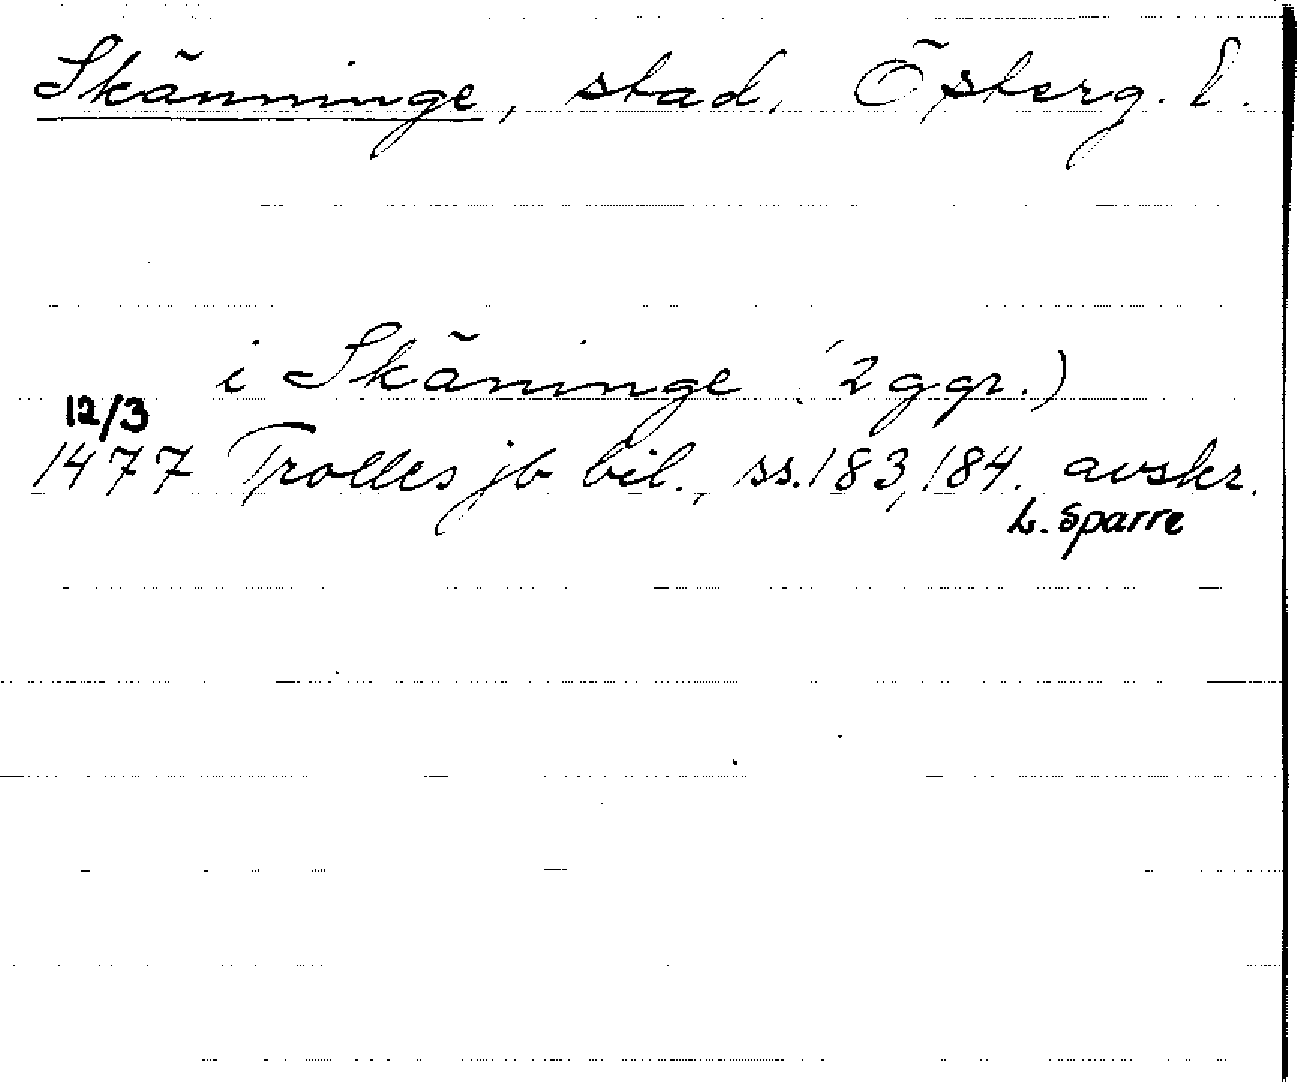 Skänninge, stad, Österg. l.
i Skäninge (2 ggr.)
12/3
1477 Trolles jb bil., ss. 183, 184. avskr.
L. Sparre